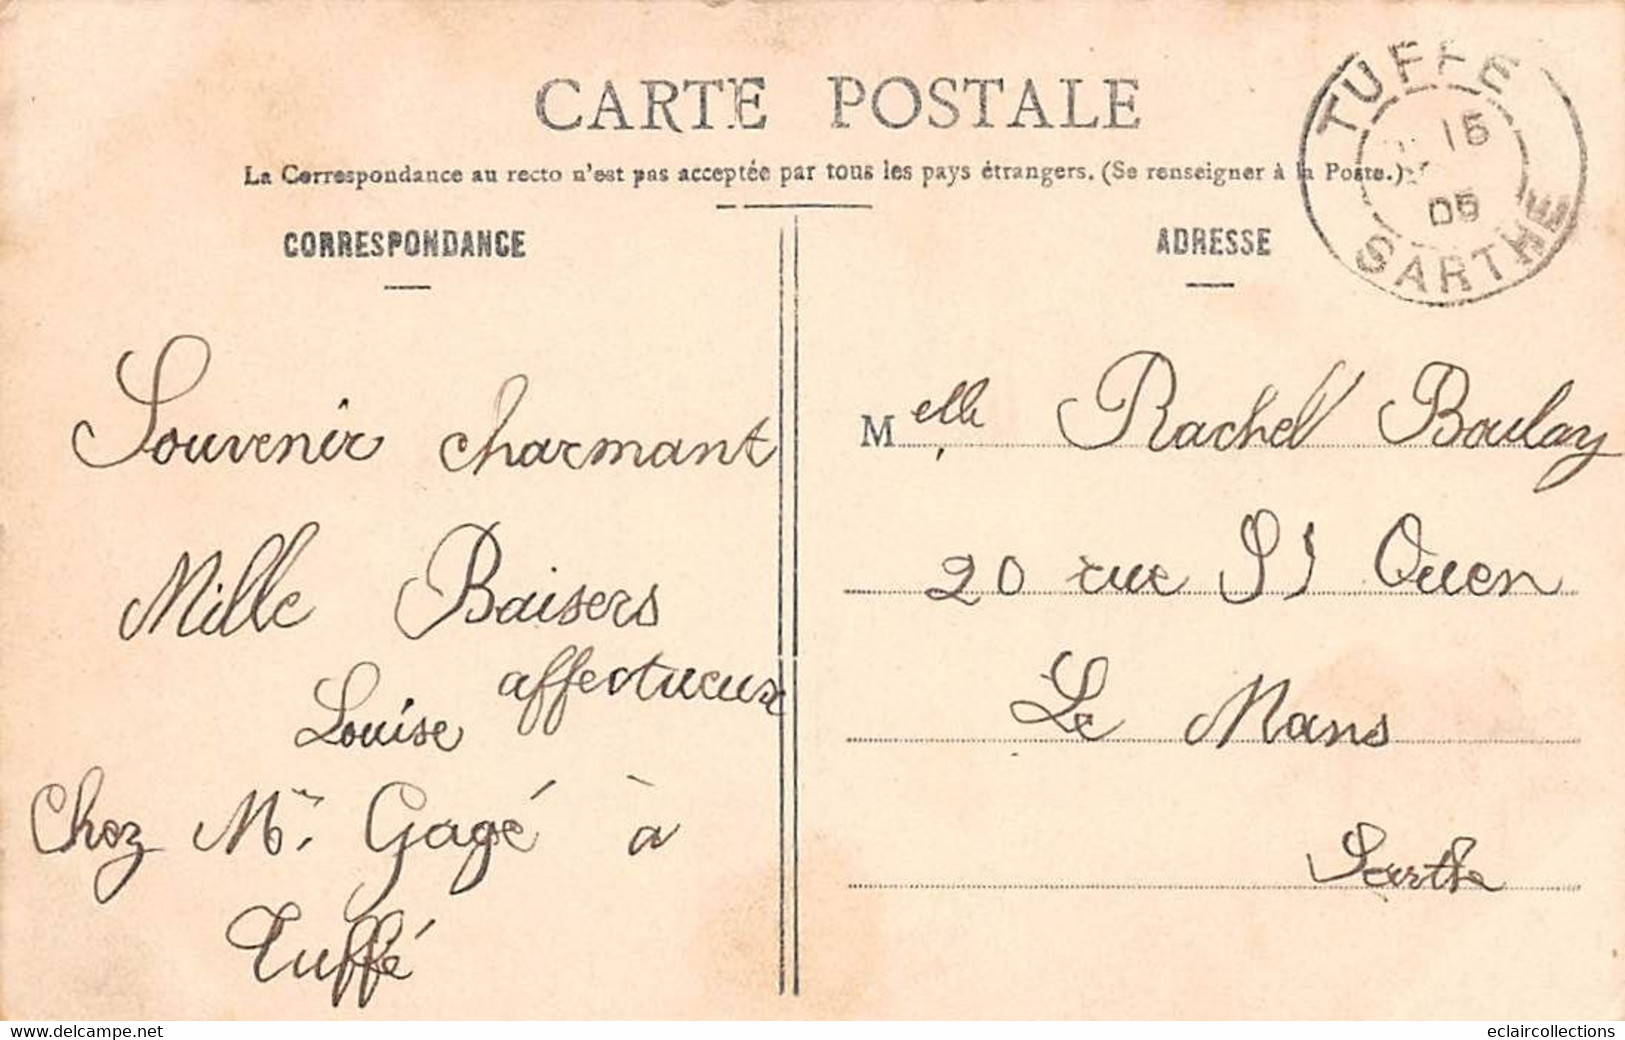 CARTE POSTALE
La Correspondance au recto n'est pas acceptée par tous les pays étrangers. (Se renseigner à la Poste.)
TUFFE
15
05
SARTHE
CORRESPONDANCE
Souvenir charmant
Mille Baisers
affectueux
Louise
Chez Mr. Gagé à
Tuffé
ADRESSE
Melle Rachel Boulay
20 rue St Ouen
Le Mans
Sarthe
www.delcampe.net
eclaircollections